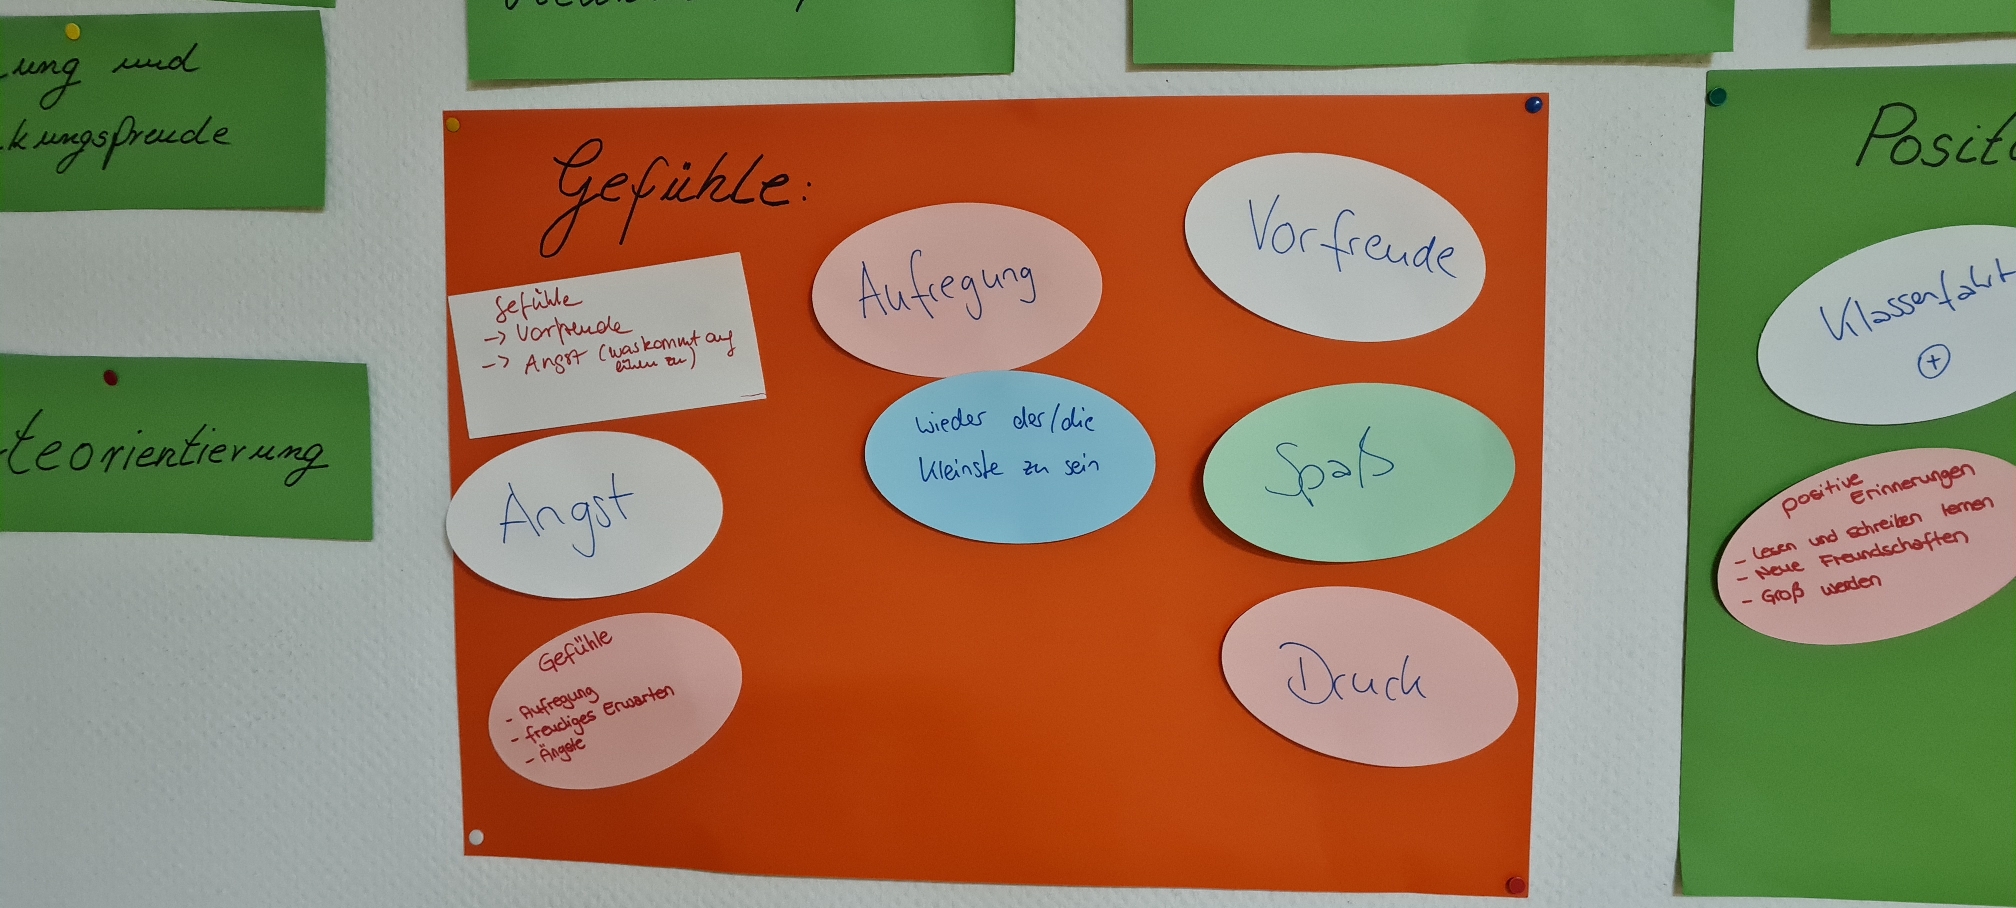 ung und
kungsfreude
teorientierung
Gefühle:
Gefühle
-> Vorfreude
-> Angst (was kommt auf
zu)
Angst
Gefühle
- Aufregung
- freudiges Erwarten
- Ängste
Aufregung
wieder der/die
kleinste zu sein
Vorfreude
Spaß
Druck
Posit
Klassenfahrt
+
positive
Erinnerungen
- lesen und schreiben lernen
- Neue Freundschaften
- Groß werden